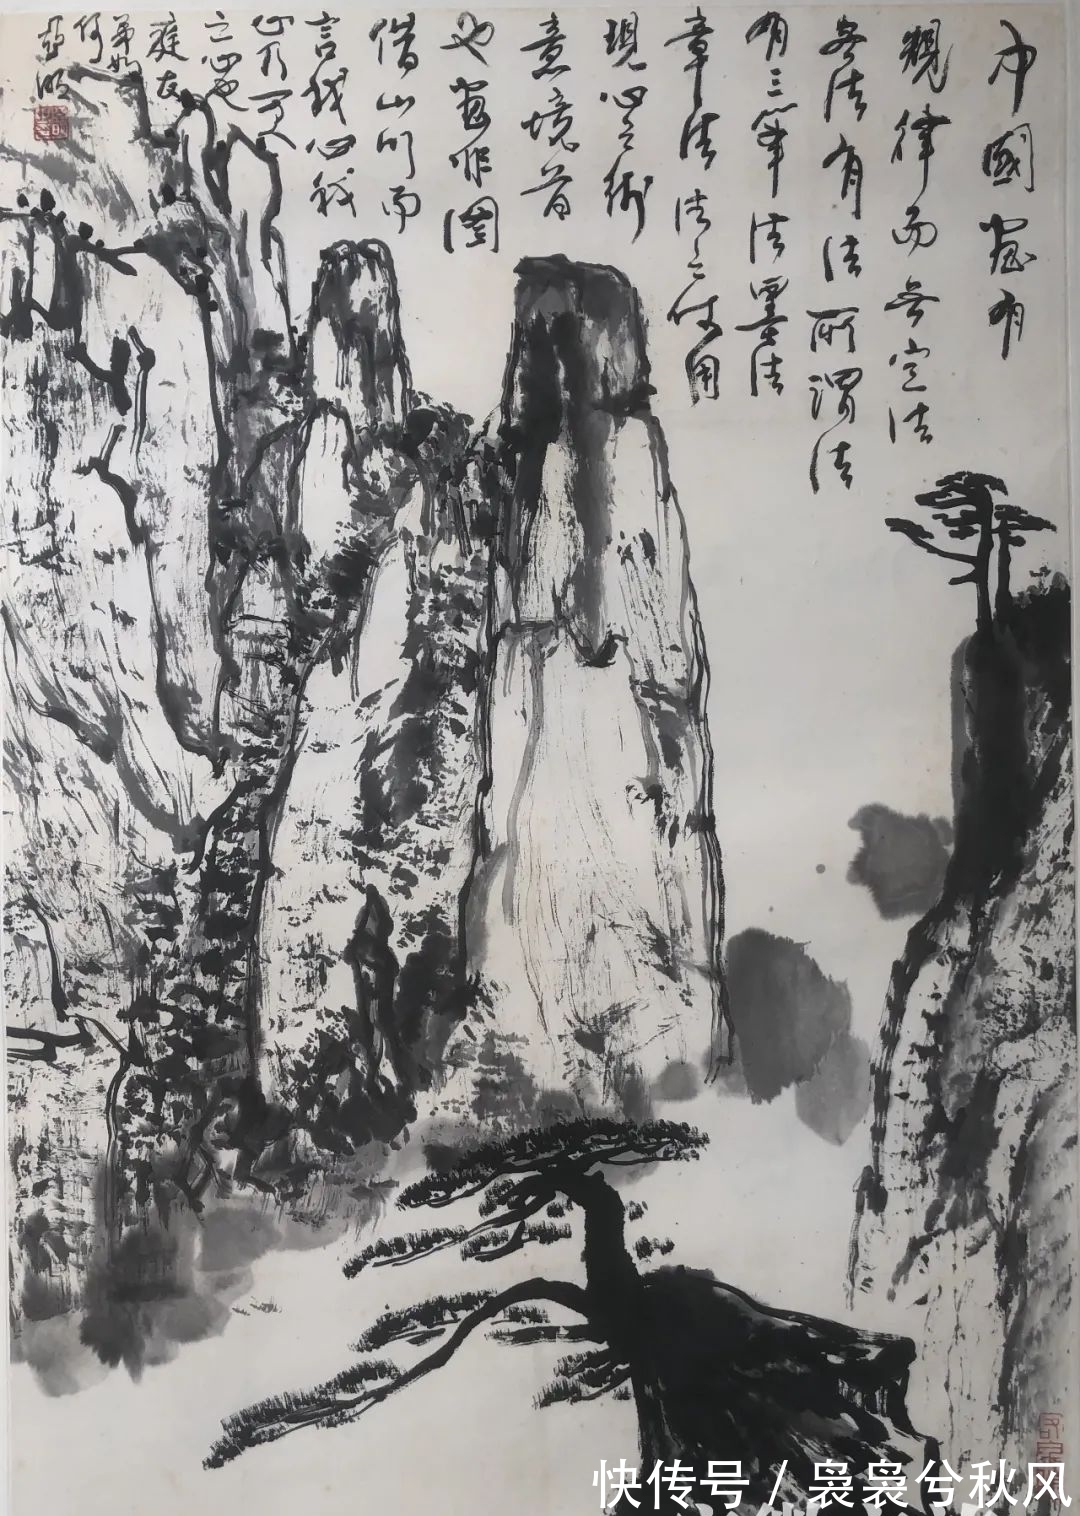 中國畫有
規律而無定法
無法有法所謂法
有三筆法墨法
章法法之使用
現心之術
意境者
也畫非圖
借山川而
言我心我
心乃可人
之心也
庭友
弟如
何
亞明
快传号 / 袅袅兮秋风